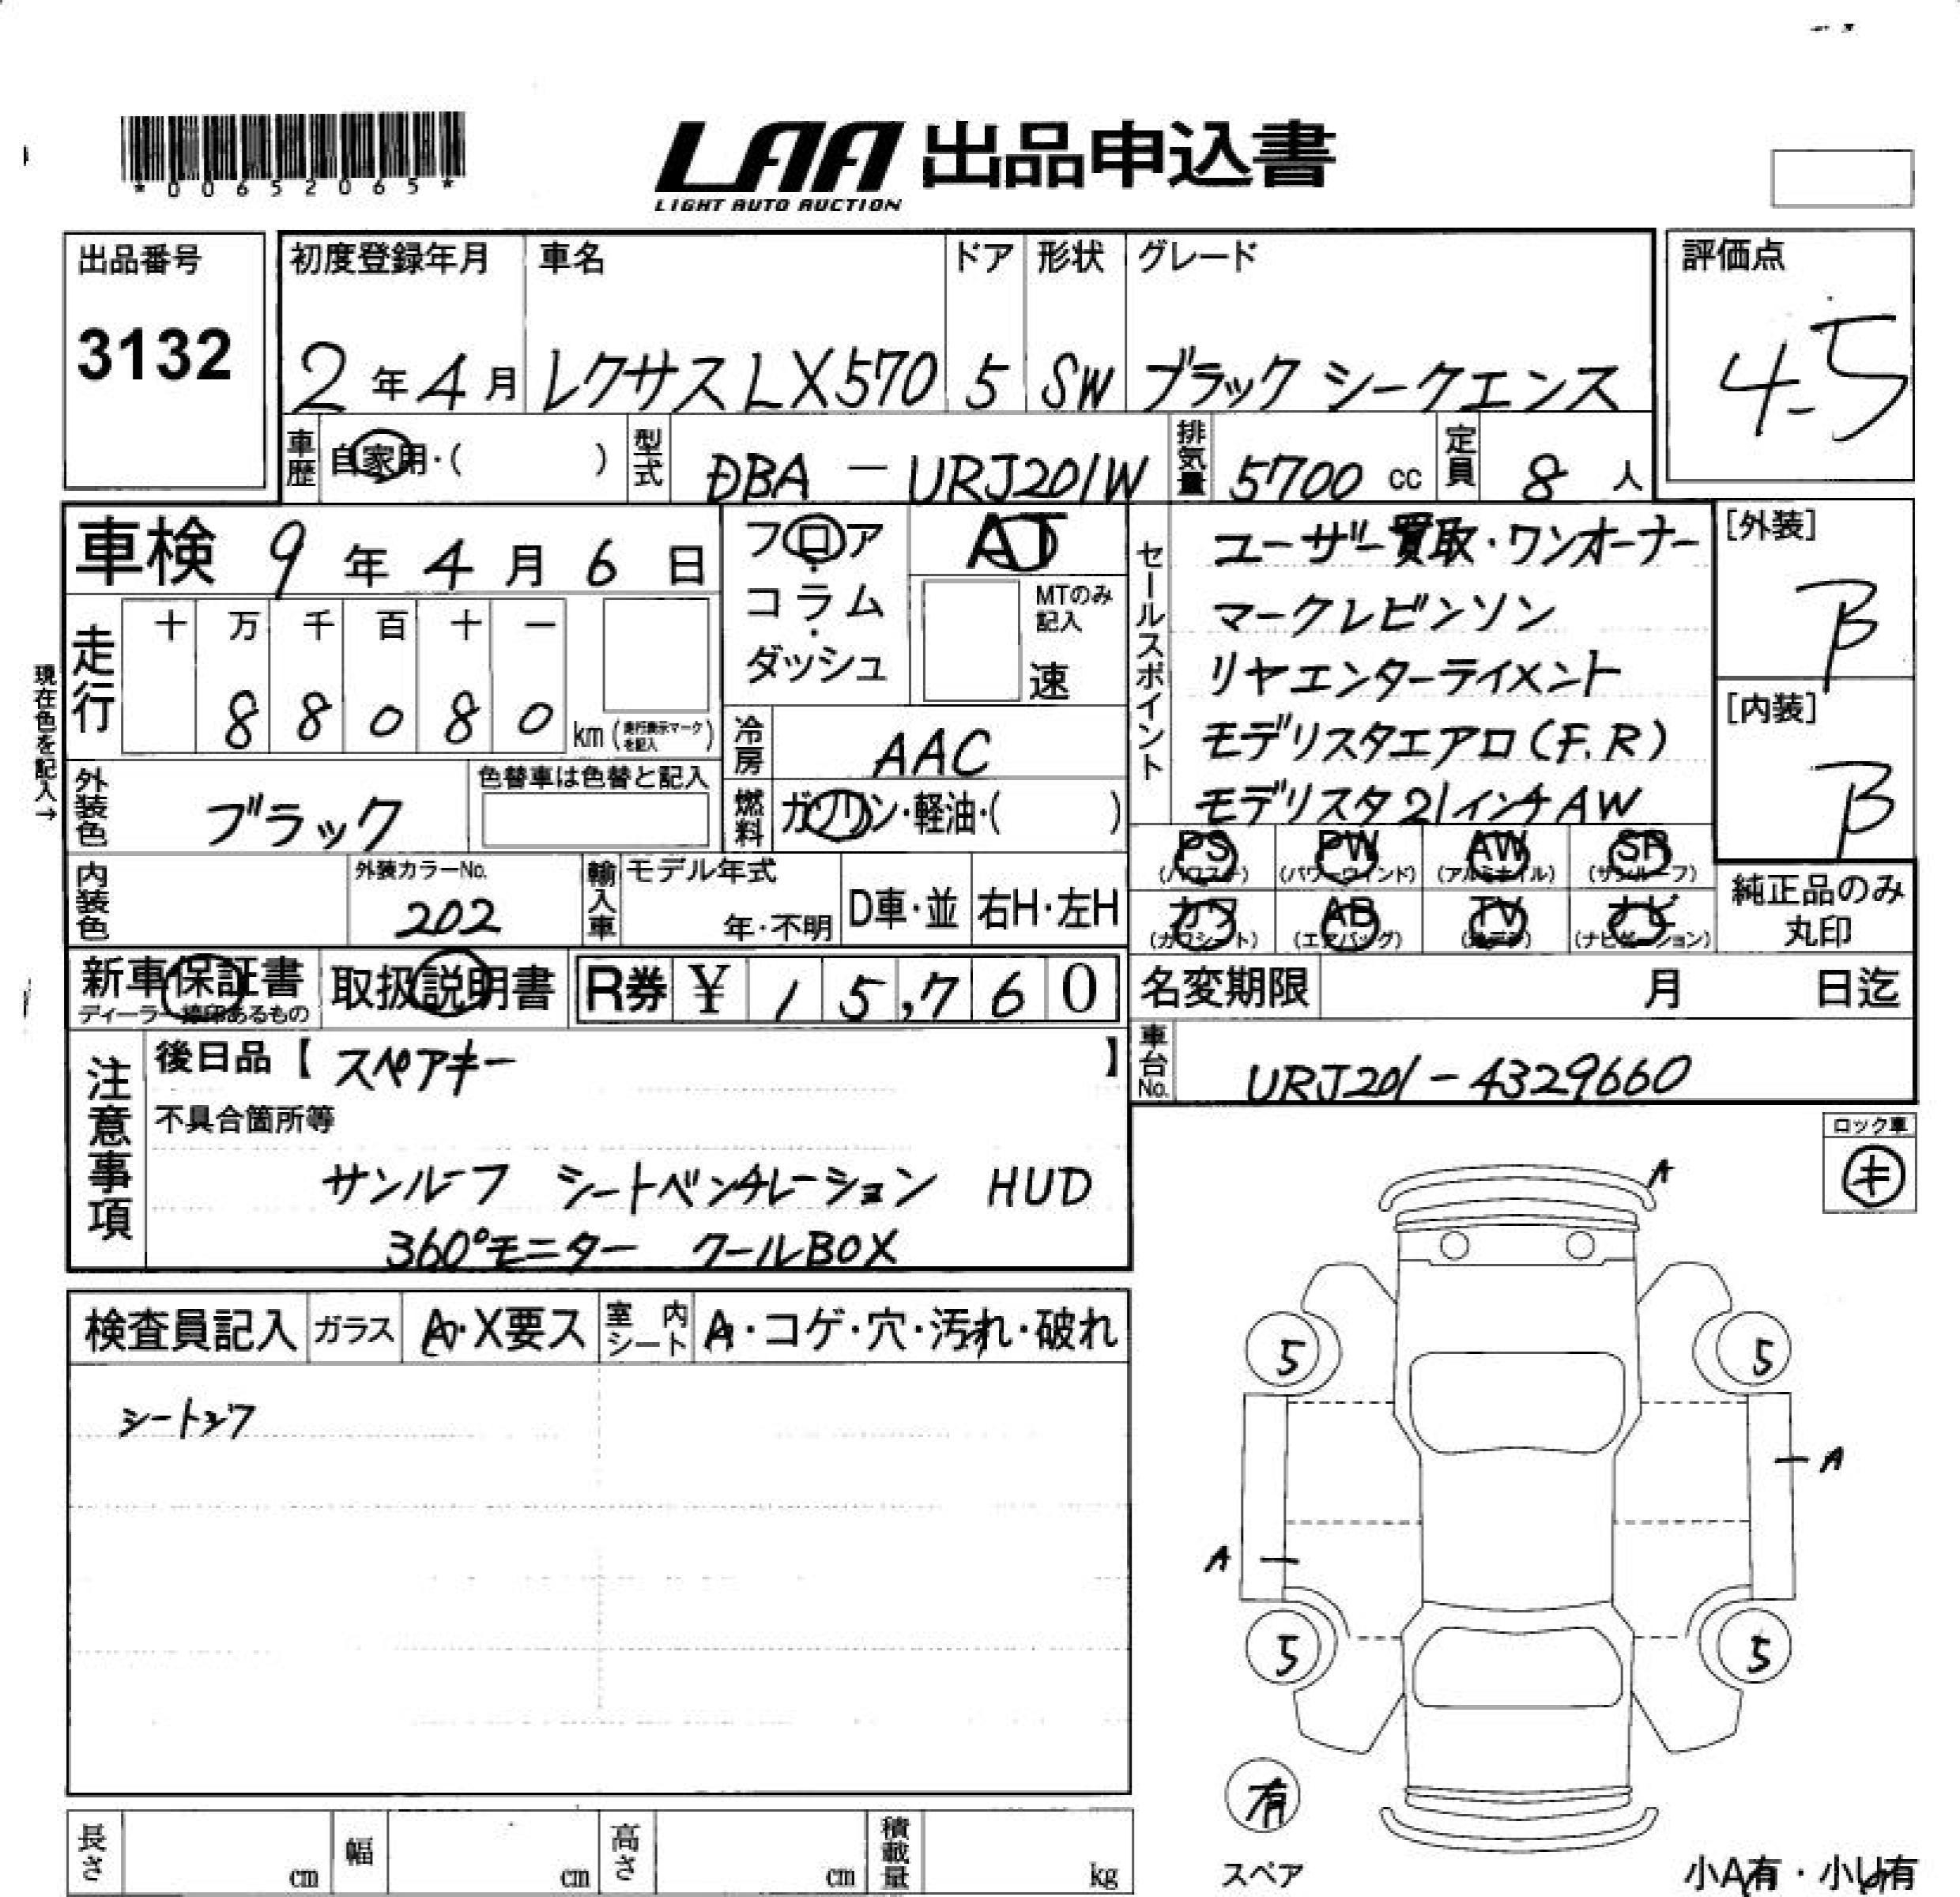 *00652065*
LAA 出品申込書
LIGHT AUTO AUCTION
出品番号
3132
初度登録年月
2年4月
車名
レクサス LX570
ドア
5
形状
SW
グレード
ブラック シークエンス
評価点
4.5
車歴
自家用・( )
型式
DBA － URJ201W
排気量
5700 cc
定員
8 人
車検 9年4月6日
フロア・コラム・ダッシュ
AT
MTのみ記入
速
セールスポイント
ユーザー買取・ワンオーナー
マークレビンソン
リヤエンターテイメント
モデリスタエアロ(F.R)
モデリスタ21インチAW
[外装]
B
[内装]
B
現在色を記入→
走行
十 万 千 百 十 一
8 8 0 8 0 km (走行表示マークを記入)
冷房
AAC
外装色
ブラック
色替車は色替と記入
燃料
ガソリン・軽油・( )
PS (パワステ)
PW (パワーウインド)
AW (アルミホイル)
SR (サンルーフ)
カワ (カワシート)
AB (エアバッグ)
TV (地デジ)
ナビ (ナビゲーション)
純正品のみ丸印
内装色
外装カラーNo.
202
輸入車
モデル年式
年・不明
D車・並
右H・左H
新車保証書
ディーラー捺印あるもの
取扱説明書
R券 ¥ 15,760
名変期限 月 日迄
車台No.
URJ201-4329660
注意事項
後日品【 スペアキー 】
不具合箇所等
サンルーフ シートベンチレーション HUD
360°モニター クールBOX
ロック車
キ
検査員記入
ガラス
A・X要ス
室内シート
A・コゲ・穴・汚れ・破れ
シートシワ
A
5
5
A
A
5
5
有
スペア
長さ cm
幅 cm
高さ cm
積載量 kg
小A有・小U有